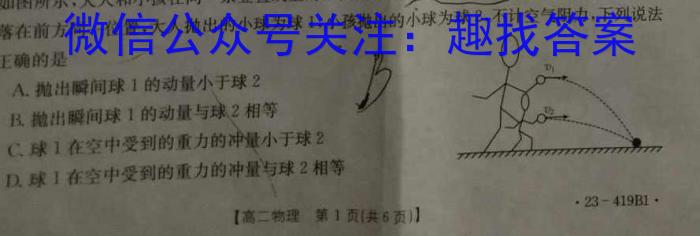 如图所示,大人和小孩在同一
落在前方 位置,大人抛出的小球为球1,小孩抛出的小球为球2,不计空气阻力,下列说法
微信公众号关注：趣找答案
正确的是
A. 抛出瞬间球 1 的动量小于球 2
B. 抛出瞬间球 1 的动量与球 2 相等
C. 球 1 在空中受到的重力的冲量小于球 2
D. 球 1 在空中受到的重力的冲量与球 2 相等
B
v₁
v₂
【高二物理 第 1 页(共 6 页)】
·23-419B1·